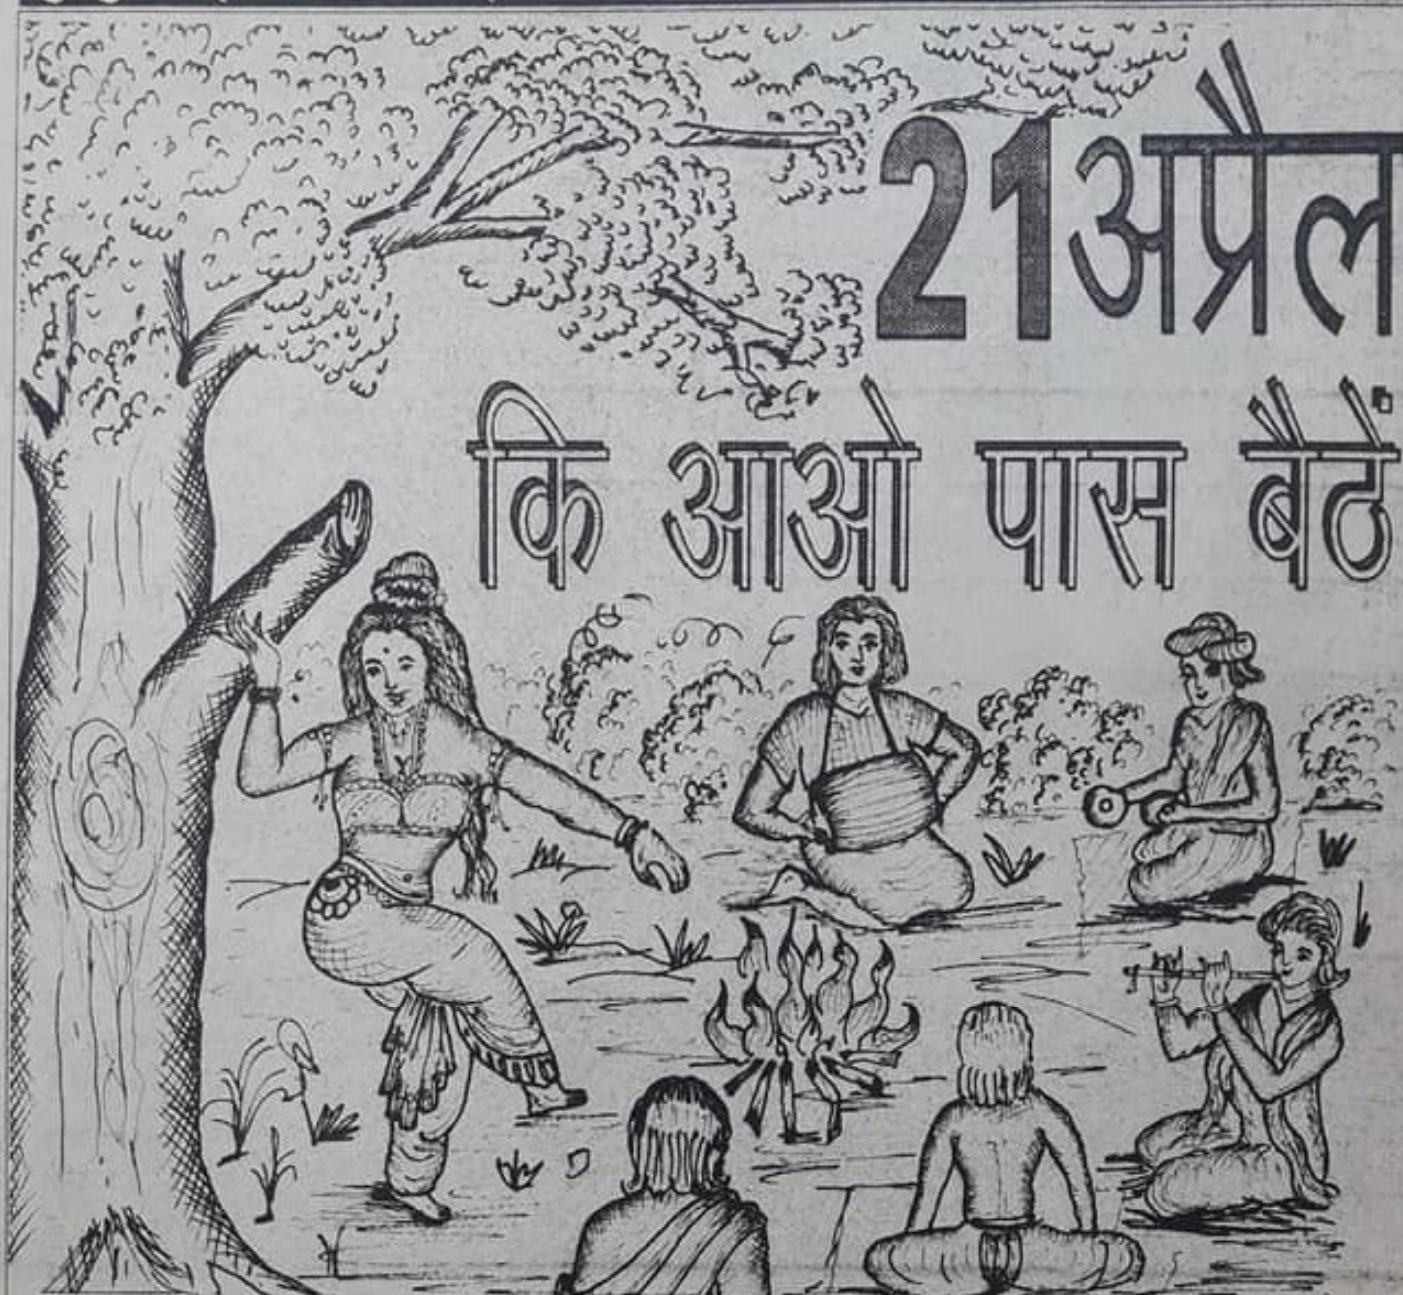 21अप्रैल
कि आओ पास बैठें